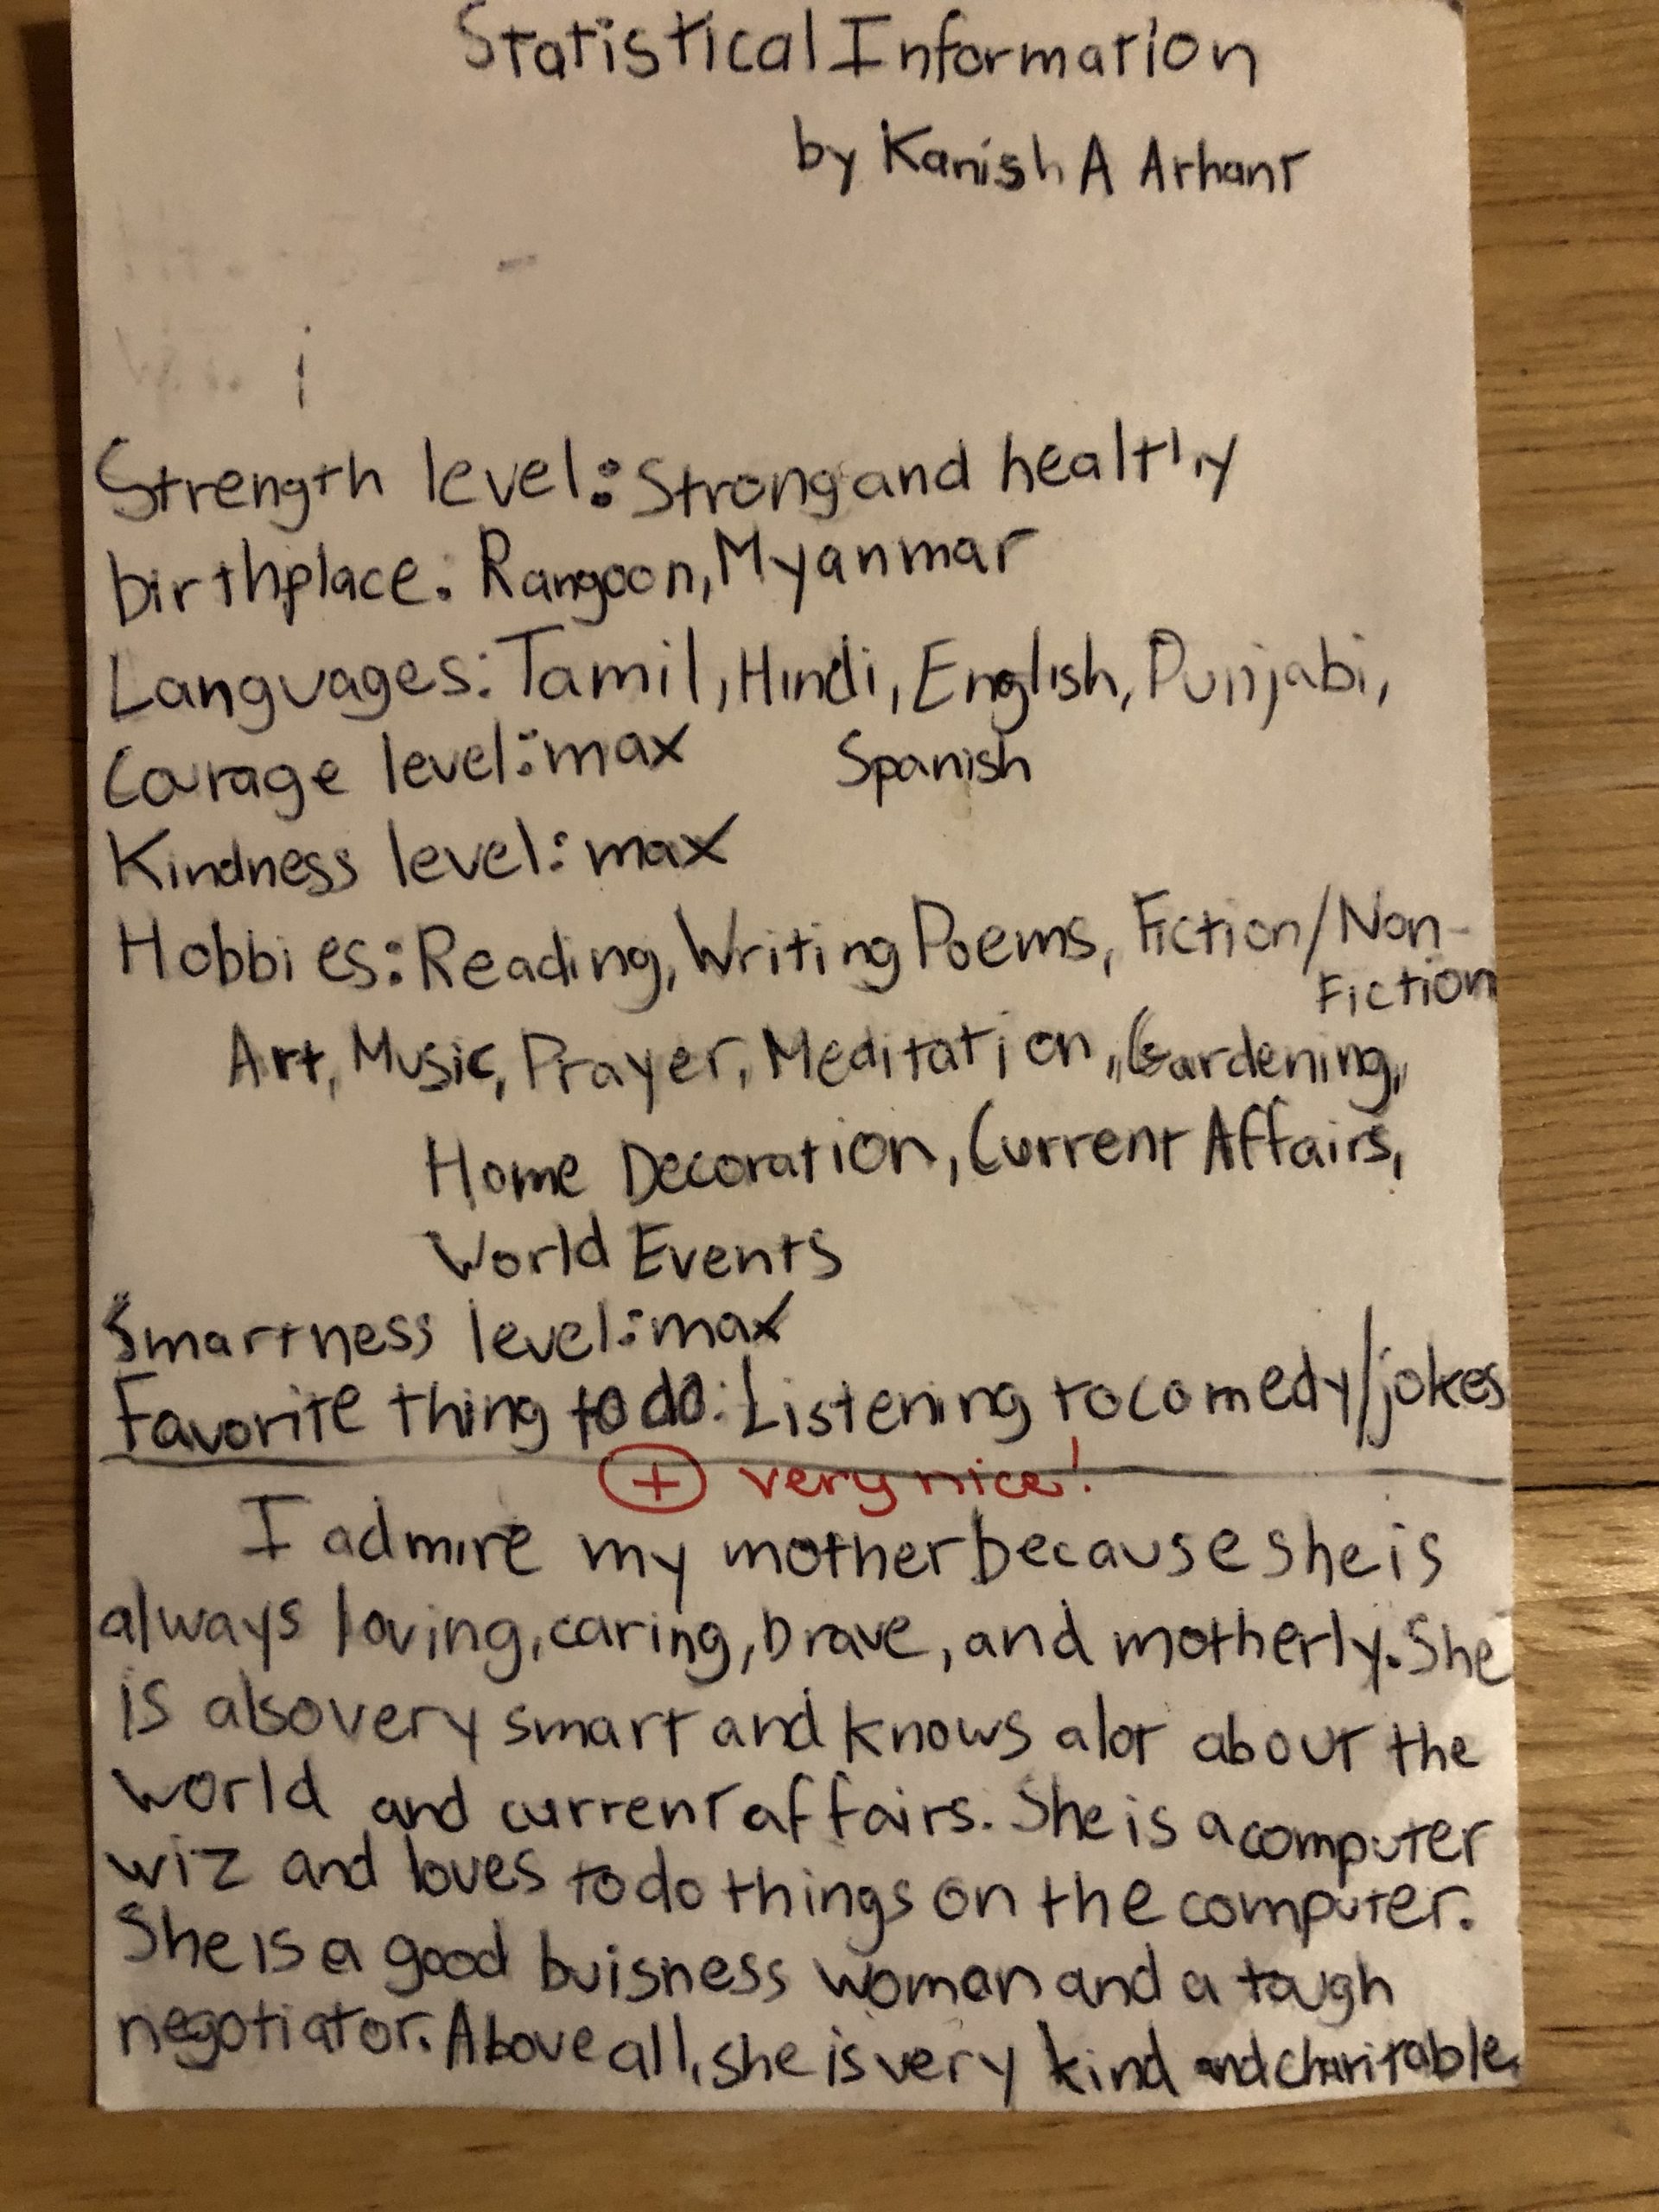 Statistical Information
by Kanish A Arhant
Strength level: Strong and healthy
birthplace: Rangoon, Myanmar
Languages: Tamil, Hindi, English, Punjabi,
Spanish
Courage level: max
Kindness level: max
Hobbies: Reading, Writing Poems, Fiction/Non-
Fiction
Art, Music, Prayer, Meditation, Gardening,
Home Decoration, Current Affairs,
World Events
Smartness level: max
Favorite thing to do: Listening to comedy/jokes
+ very nice!
I admire my mother because she is
always loving, caring, brave, and motherly. She
is also very smart and knows alot about the
world and current affairs. She is a computer
wiz and loves to do things on the computer.
She is a good buisness woman and a tough
negotiator. Above all, she is very kind and charitable.